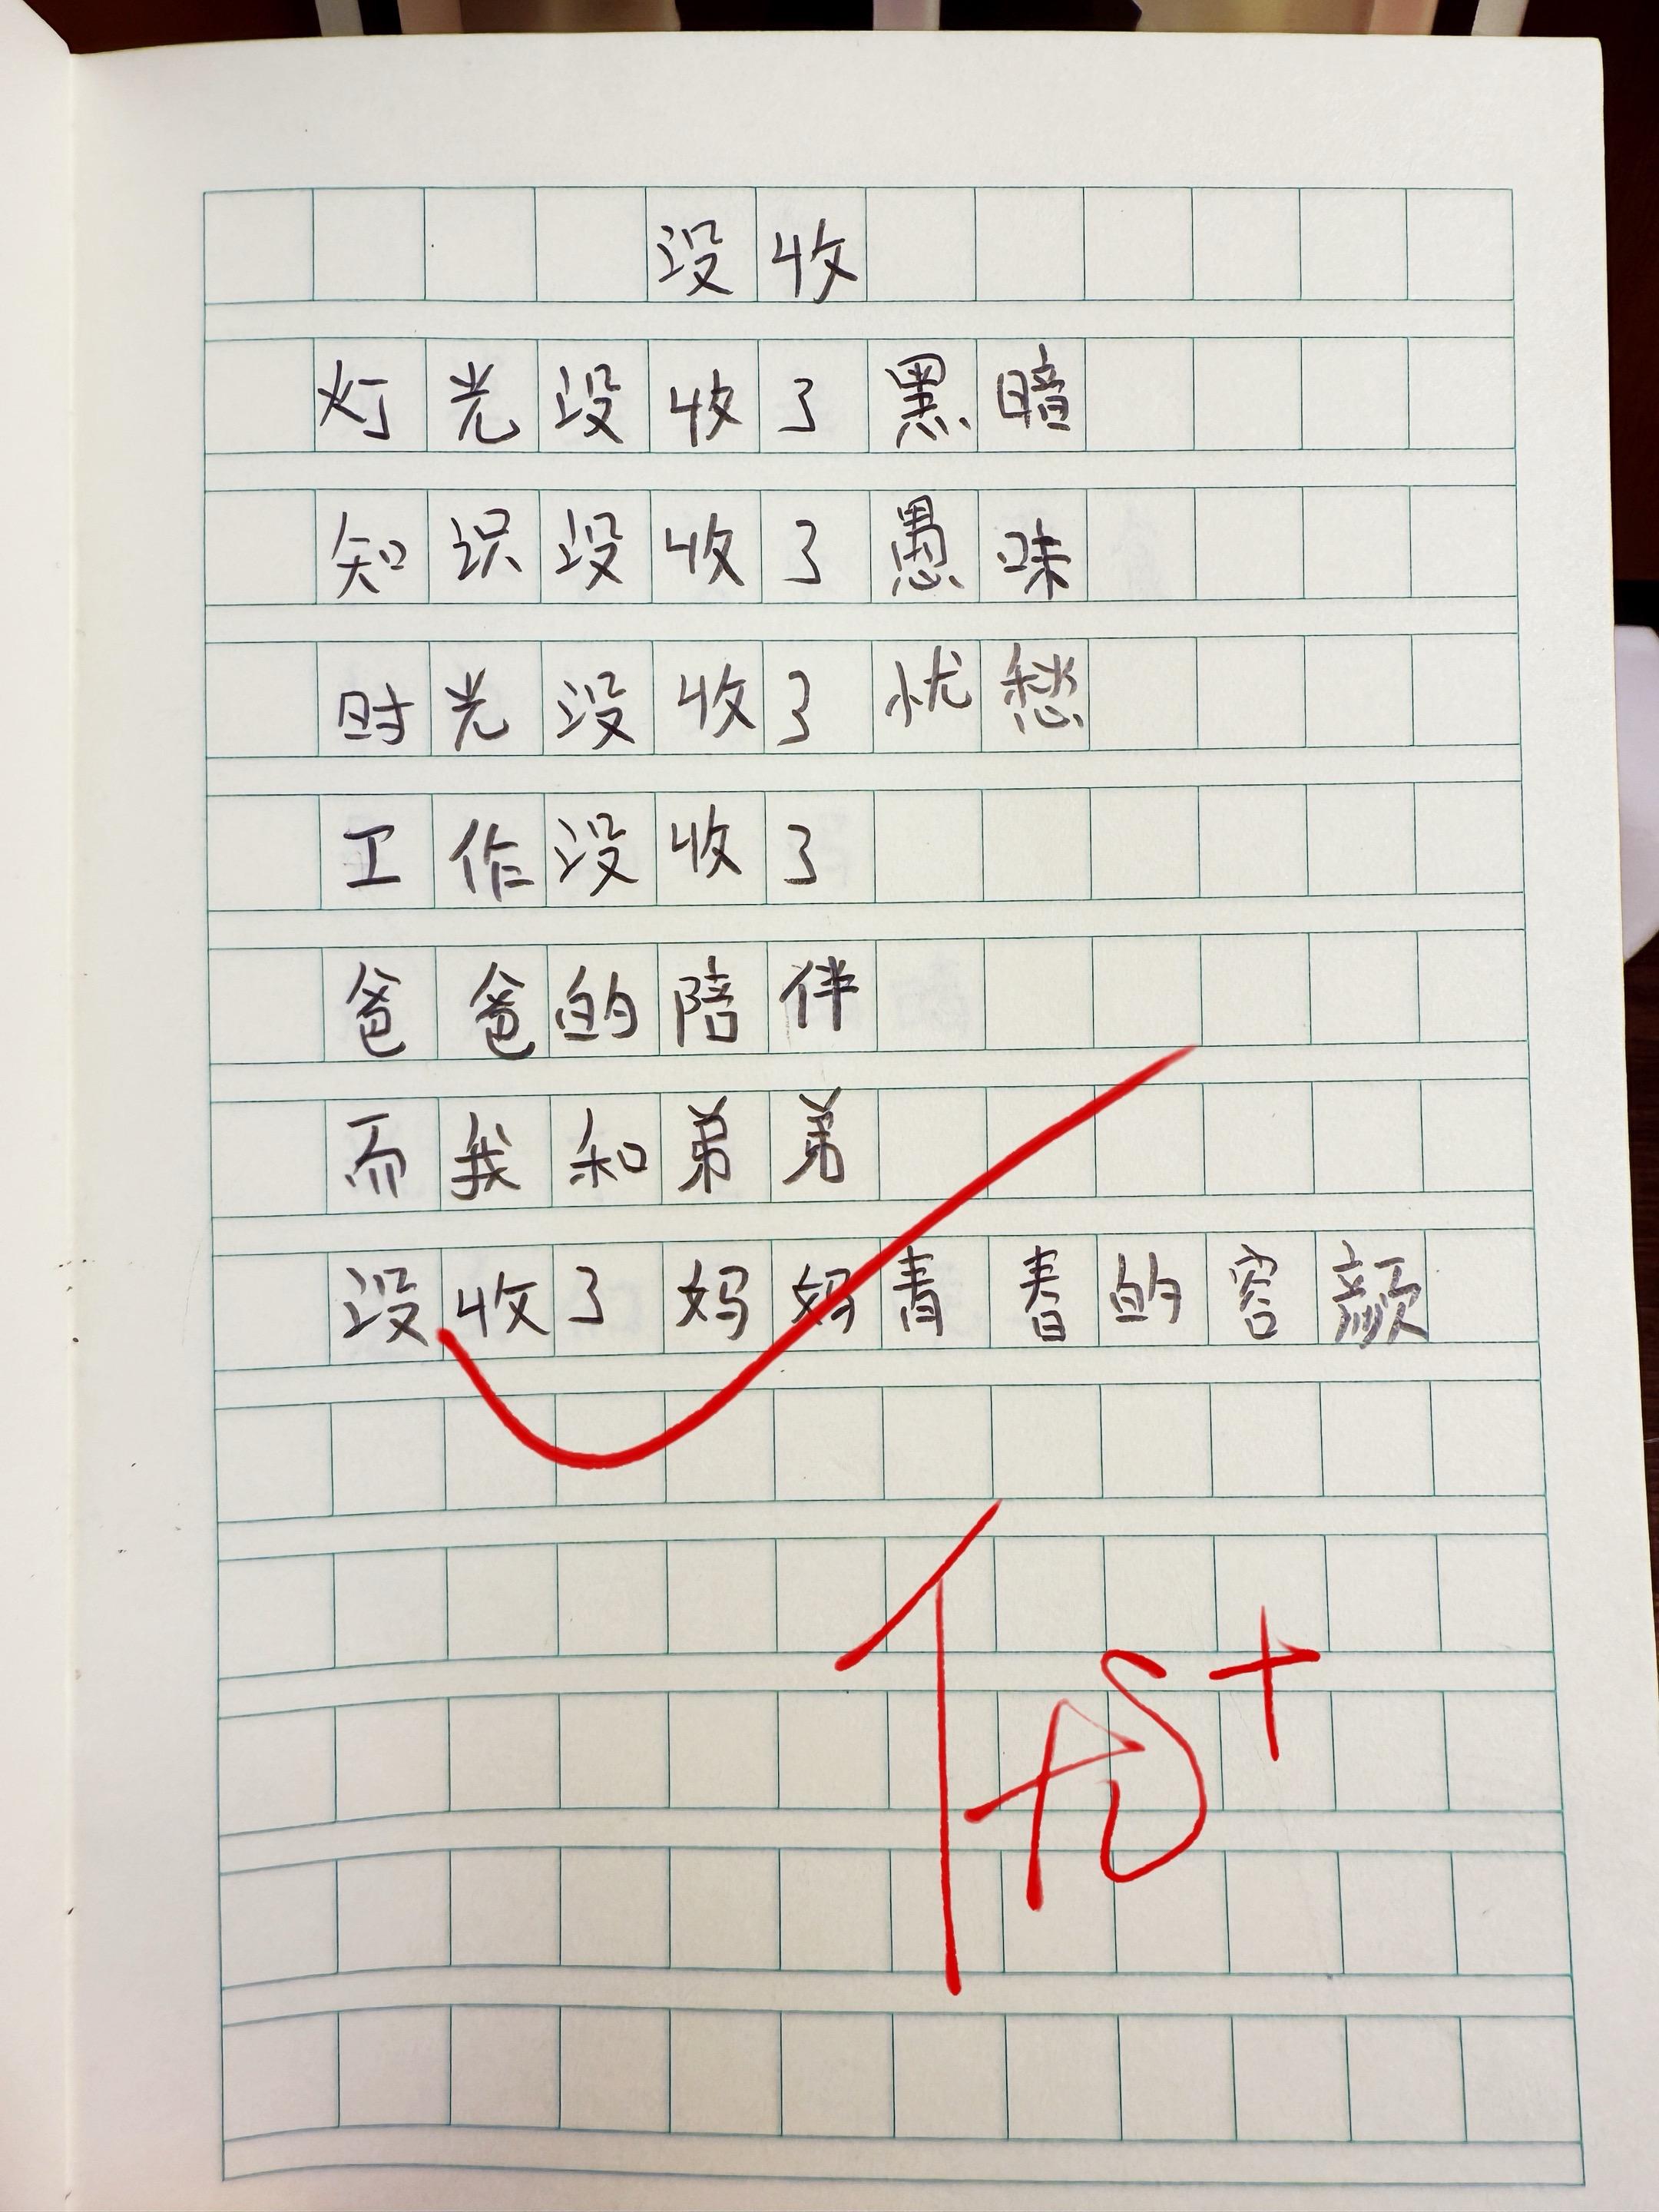 没收
灯光没收了黑暗
知识没收了愚昧
时光没收了忧愁
工作没收了
爸爸的陪伴
而我和弟弟
没收了妈妈青春的容颜